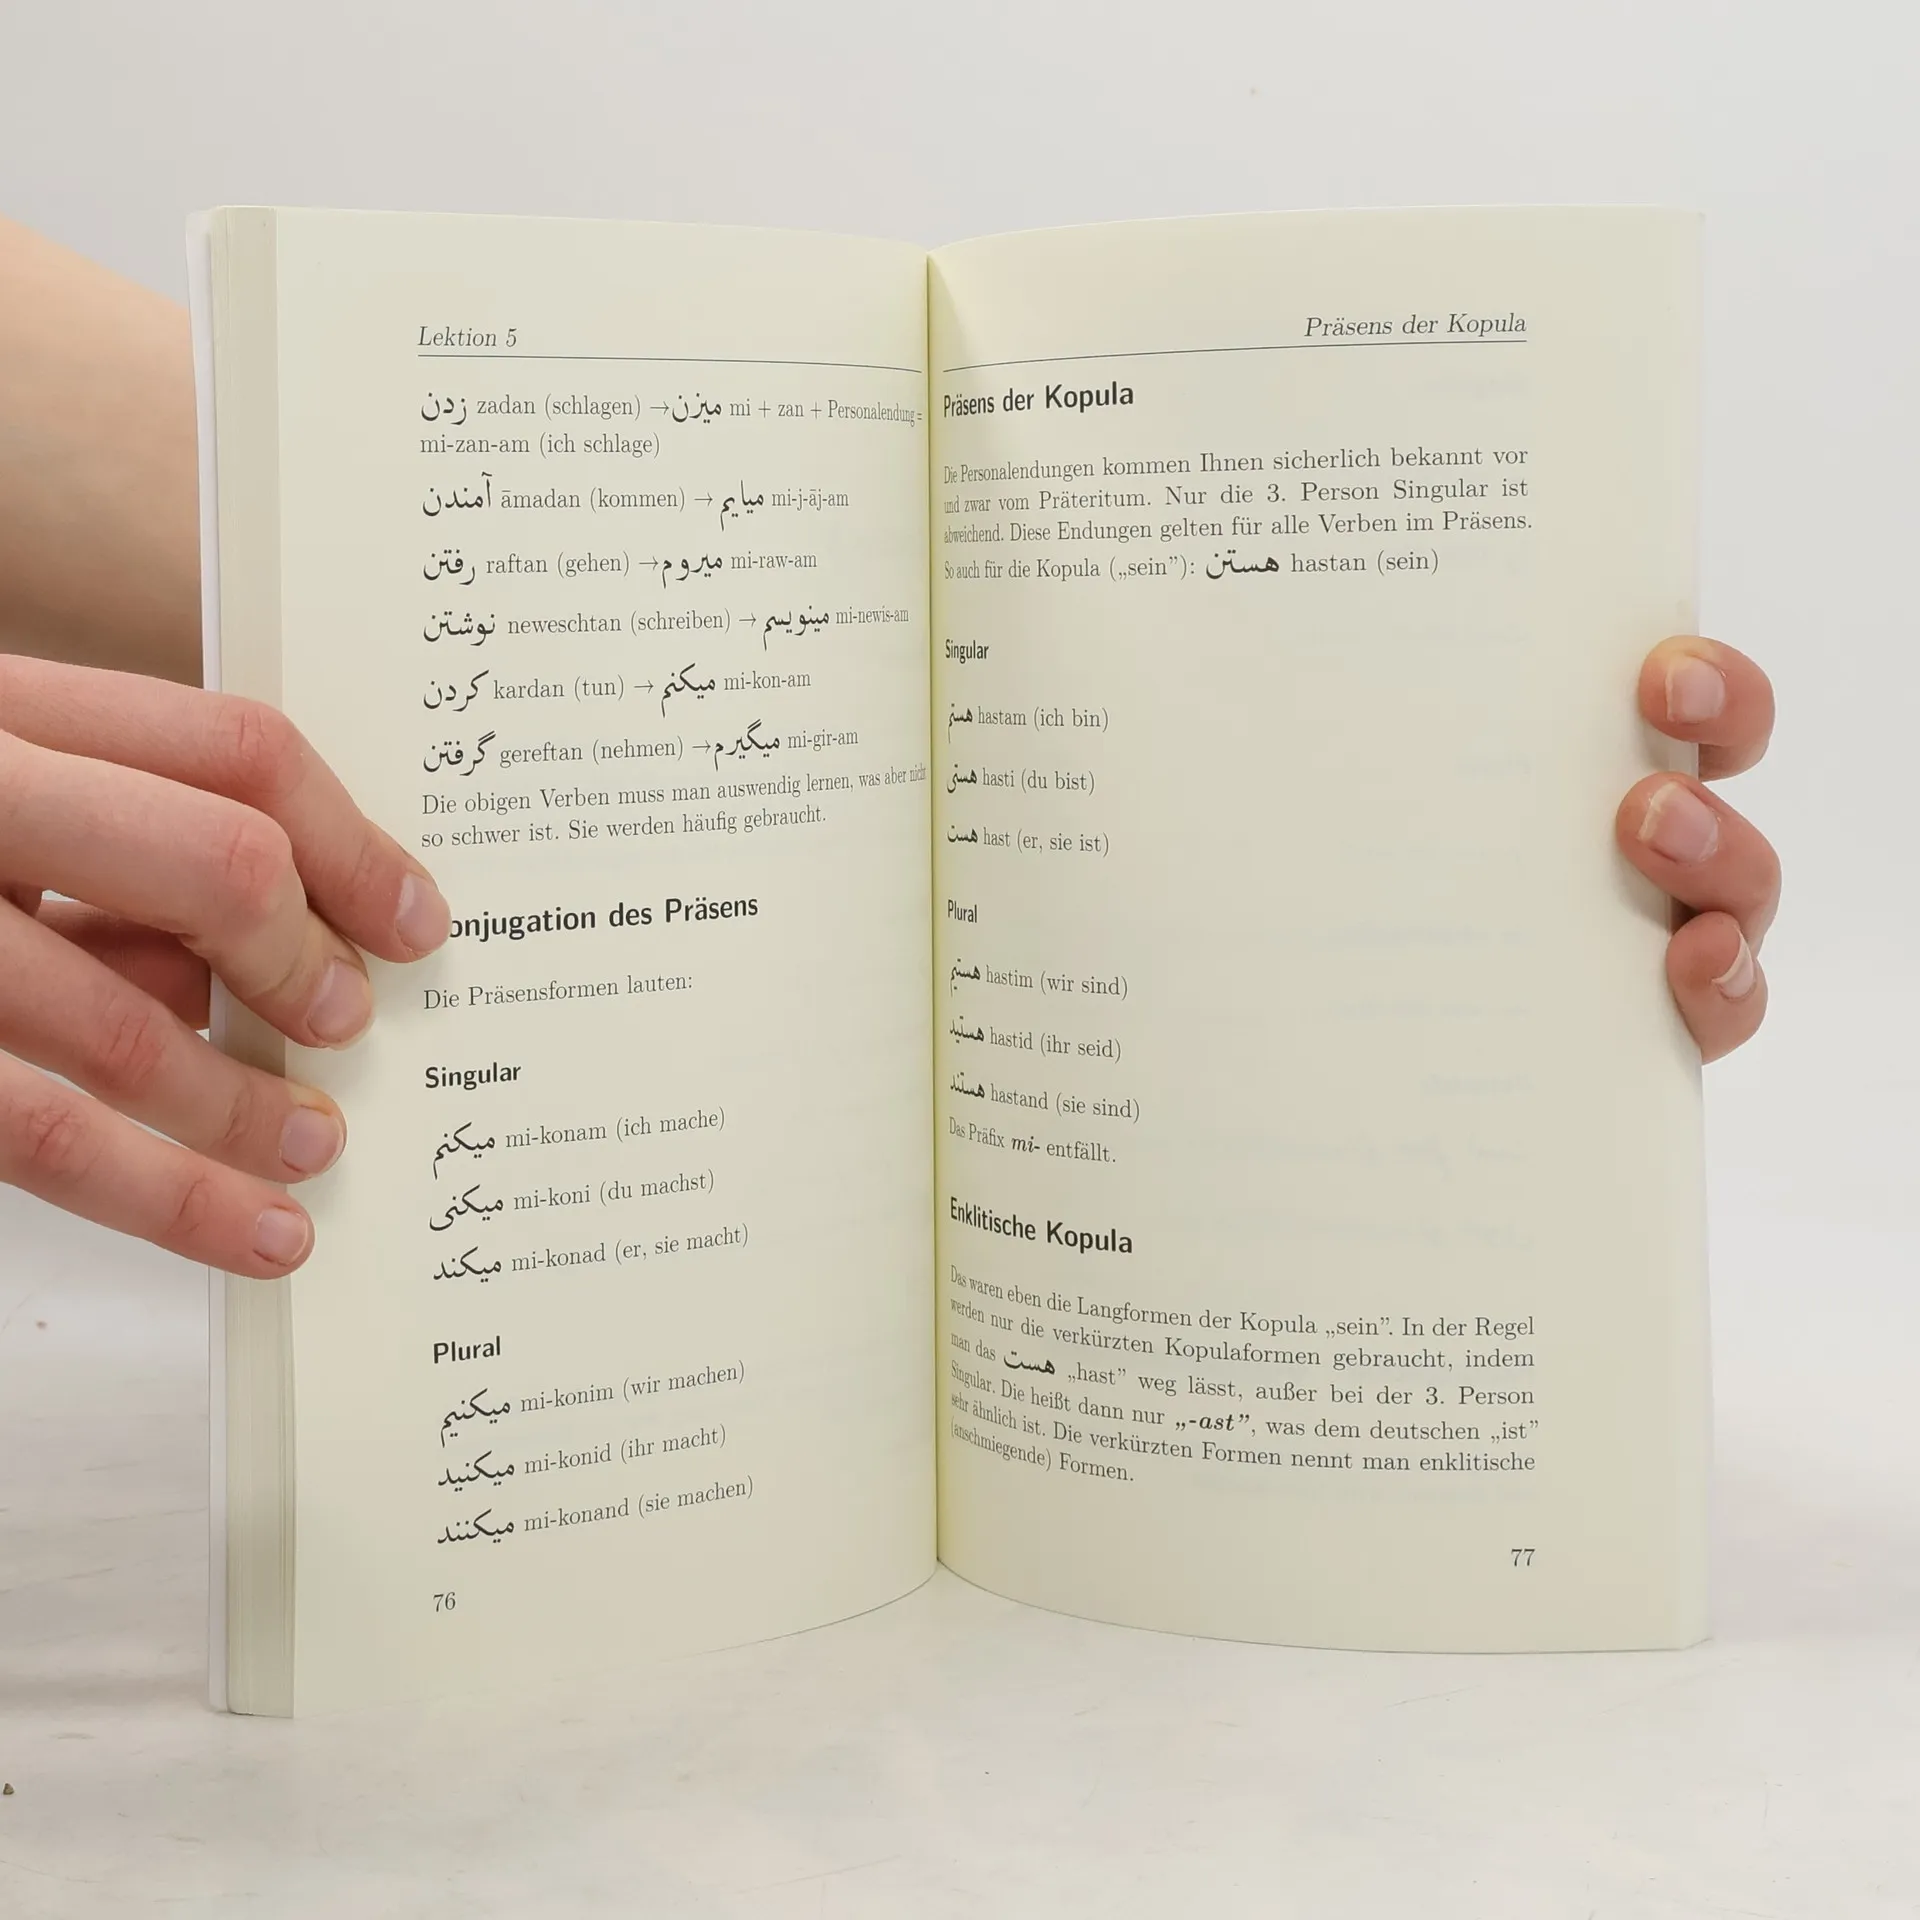 Lektion 5
زدن zadan (schlagen) → میزن mi + zan + Personalendung =
mi-zan-am (ich schlage)
آمندن āmadan (kommen) → میایم mi-j-āj-am
رفتن raftan (gehen) → میروم mi-raw-am
نوشتن neweschtan (schreiben) → مینویسم mi-newis-am
کردن kardan (tun) → میکنم mi-kon-am
گرفتن gereftan (nehmen) → میگیرم mi-gir-am
Die obigen Verben muss man auswendig lernen, was aber nicht
so schwer ist. Sie werden häufig gebraucht.
onjugation des Präsens
Die Präsensformen lauten:
Singular
میکنم mi-konam (ich mache)
میکنی mi-koni (du machst)
میکند mi-konad (er, sie macht)
Plural
میکنیم mi-konim (wir machen)
میکنید mi-konid (ihr macht)
میکنند mi-konand (sie machen)
76
Präsens der Kopula
Präsens der Kopula
Die Personalendungen kommen Ihnen sicherlich bekannt vor
und zwar vom Präteritum. Nur die 3. Person Singular ist
abweichend. Diese Endungen gelten für alle Verben im Präsens.
So auch für die Kopula („sein”): هستن hastan (sein)
Singular
هستم hastam (ich bin)
هستی hasti (du bist)
هست hast (er, sie ist)
Plural
هستیم hastim (wir sind)
هستید hastid (ihr seid)
هستند hastand (sie sind)
Das Präfix mi- entfällt.
Enklitische Kopula
Das waren eben die Langformen der Kopula „sein”. In der Regel
werden nur die verkürzten Kopulaformen gebraucht, indem
man das هست „hast” weg lässt, außer bei der 3. Person
Singular. Die heißt dann nur „-ast”, was dem deutschen „ist”
sehr ähnlich ist. Die verkürzten Formen nennt man enklitische
(anschmiegende) Formen.
77